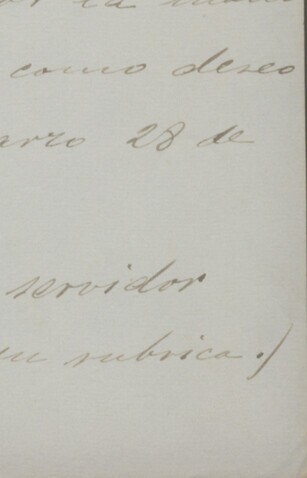 la
como deseo
arzo 28 de
servidor
su rubrica.)